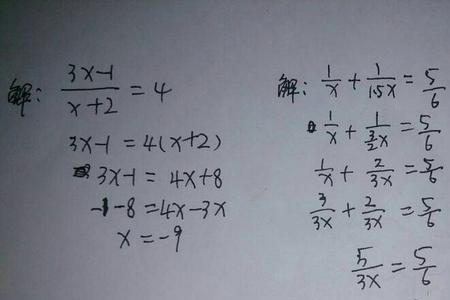 解: (3x-1)/(x+2) = 4
3x-1 = 4(x+2)
3x-1 = 4x+8
-1-8 = 4x-3x
x = -9
解: 1/x + 1/1.5x = 5/6
1/x + 1/(3/2 x) = 5/6
1/x + 2/3x = 5/6
3/3x + 2/3x = 5/6
5/3x = 5/6